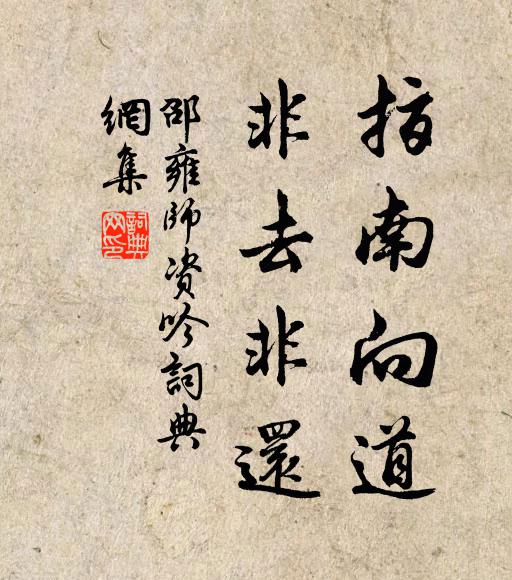 指南向道
非去非還
邵雍師资吟詞典
網集
詞典
网印